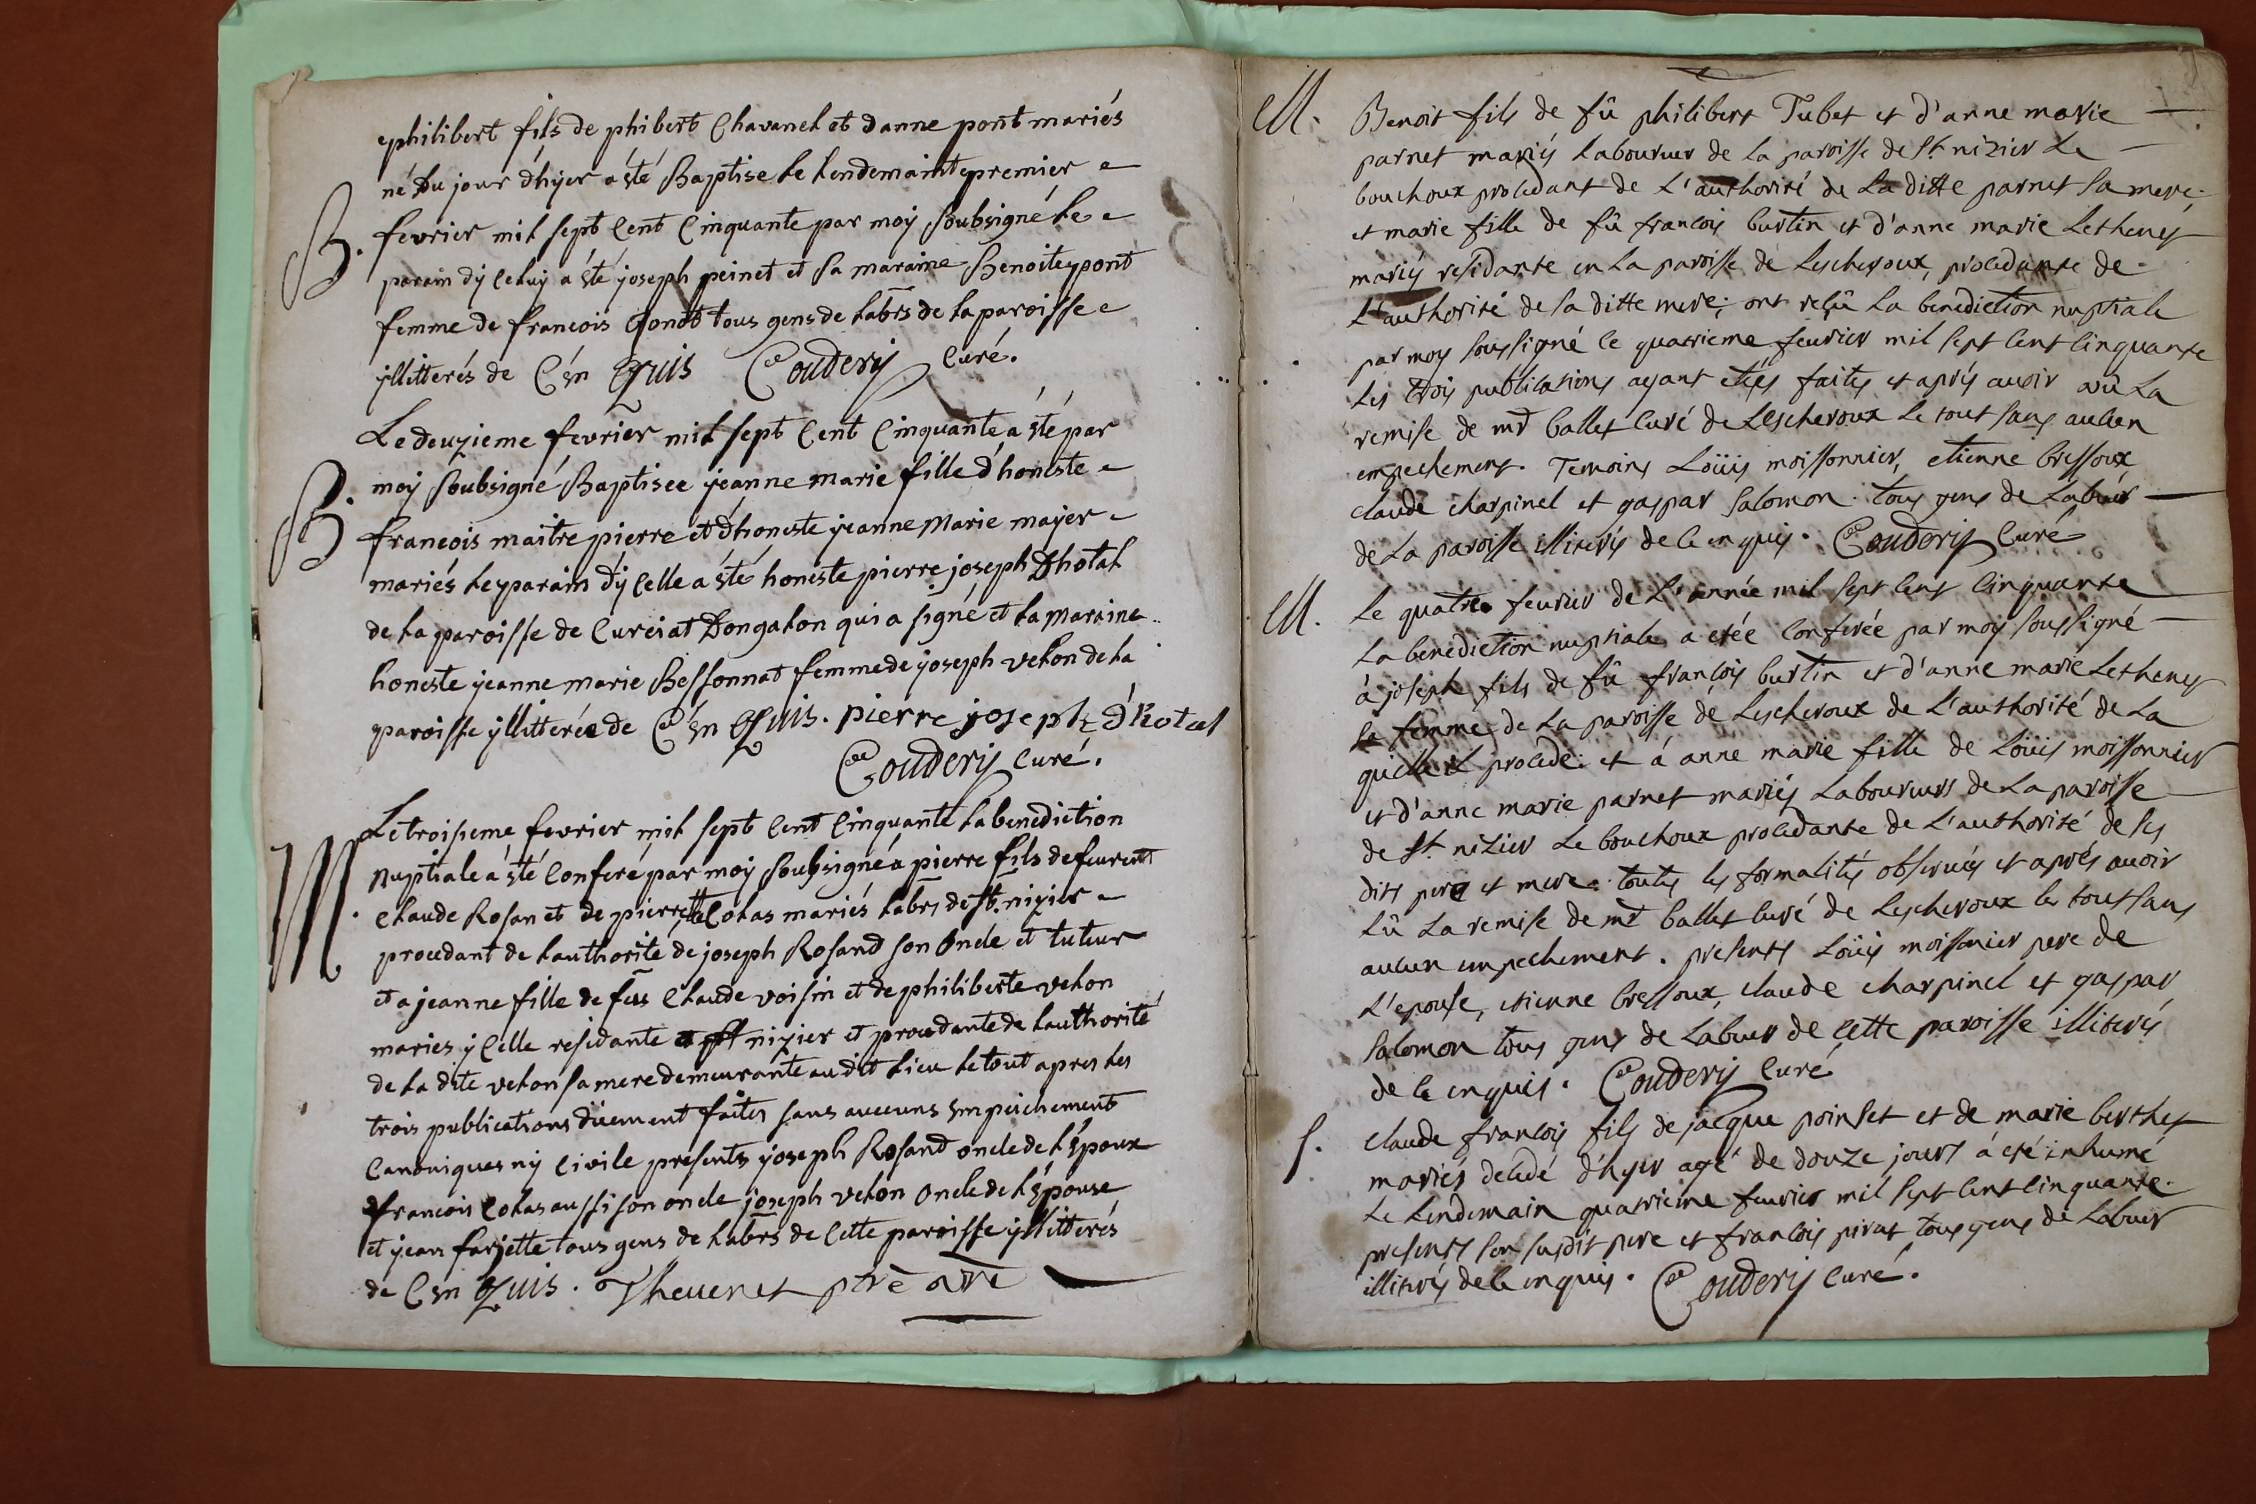 philibert fils de phibert Chavanel et danne pont mariés
né du jour d'hÿer a été Baptise le lendemaint premier
B. fevrier mil sept Cent Cinquante par moÿ Soubsigné le
parain d'ÿ Celuÿ a été joseph peinet et sa maraine Benoite pont
femme de francois Gonod tous gens de labrs de la paroisse
ÿllitterés de C'en Quis Couderÿ Curé.
Le deuzieme fevrier mil sept Cent Cinquante a été par
moÿ Soubsigné Baptisee jeanne marie fille d'honeste
B. francois maitre pierre et d'honeste jeanne Marie majer
mariés le parain d'ÿ Celle a été honeste pierre joseph Dhotal
de la paroisse de Curciat Dongalon qui a signé et la Maraine
honeste jeanne marie Bessonnat femme de joseph velon de la
paroisse ÿllitterée de C'en Quis. pierre joseph d'hotal
Couderÿ Curé.
Le troisieme fevrier mil sept Cent Cinquante la benediction
Nuptiale a été Conferé par moÿ Soubsigné a pierre fils de feu
M. Claude Rosan et de pierrette Colas mariés labrs de st. nizier
procedant de lauthorité de joseph Rosand son Oncle et tuteur
et a jeanne fille de feu Claude voisin et de philiberte velon
maries ÿ Celle residante a st nizier et procedante de lauthorité
de la dite velon sa mere demeurante au dit lieu le tout apres les
trois publications düement faites sans auccuns empeichement
Canoniques nÿ Civile presents joseph Rosand oncle de l'époux
francois Colas aussi son oncle joseph velon Oncle de l'épouse
et jean farjette tous gens de labrs de Cette paroisse ÿllitterés
de C'en Quis. Thevenet ptrē
M. Benoit fils de fû philibert Tubet et d'anne marie
parnet mariés Laboureurs de la paroisse de St. nizier Le
bouchoux procedant de L'authorité de La ditte parnet sa mere
et marie fille de fû françois burtin et d'anne marie Lethenet
mariés residante en La paroisse de Lescheroux, procedante de
L'authorité de sa ditte mere; ont reçû La benediction nuptiale
par moy soussigné le quatrieme fevrier mil sept cent cinquante
Les trois publications ayant etés faites et aprés avoir vû La
remise de mr ballet curé de Lescheroux Le tout sans aucun
empechement. Temoins Loüis moissonnier, etienne bressoux
claude charpinel et gaspar salomon. tous gens de Labeur
de La paroisse illiterés de cenquis. Couderÿ Curé
M. Le quatre fevrier de L'année mil sept cent cinquante
La benediction nuptiale a etée conferée par moy soussigné
à joseph fils de fû françois burtin et d'anne marie Lethenet
sa femme de La paroisse de Lescheroux de L'authorité de La
quelle il procede: et á anne marie fille de Loüis moissonnier
et d'anne marie parnet mariés Laboureurs de La paroisse
de St. nizier Le bouchoux procedante de L'authorité de ses
dits pere et mere. toutes les formalités observées et aprés avoir
Lû La remise de mr ballet curé de Lescheroux le tout sans
aucun empechement. presents Loüis moissonier pere de
L'epouse, etienne bressoux, claude charpinel et gaspar
salomon tous gens de Labeur de cette paroisse illiterés
de cenquis. Couderÿ Curé
S. claude françois fils de jacque poinset et de marie berthet
mariés decedé d'hyer agé de douze jours á eté inhumé
Le Lendemain quatrieme fevrier mil sept cent cinquante
presents son susdit pere et françois pirat tous gens de Labeur
illiterés de cenquis. Couderÿ Curé.